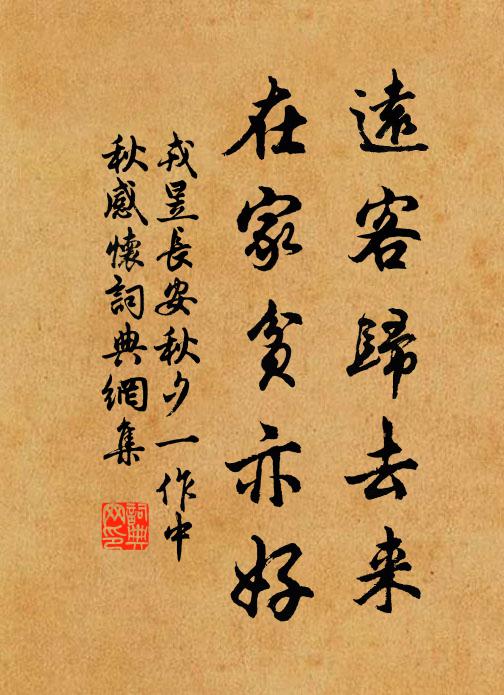 遠客歸去来
在家貧亦好
戎昱長安秋夕一作中
秋感懷詞典網集
詞典
网印